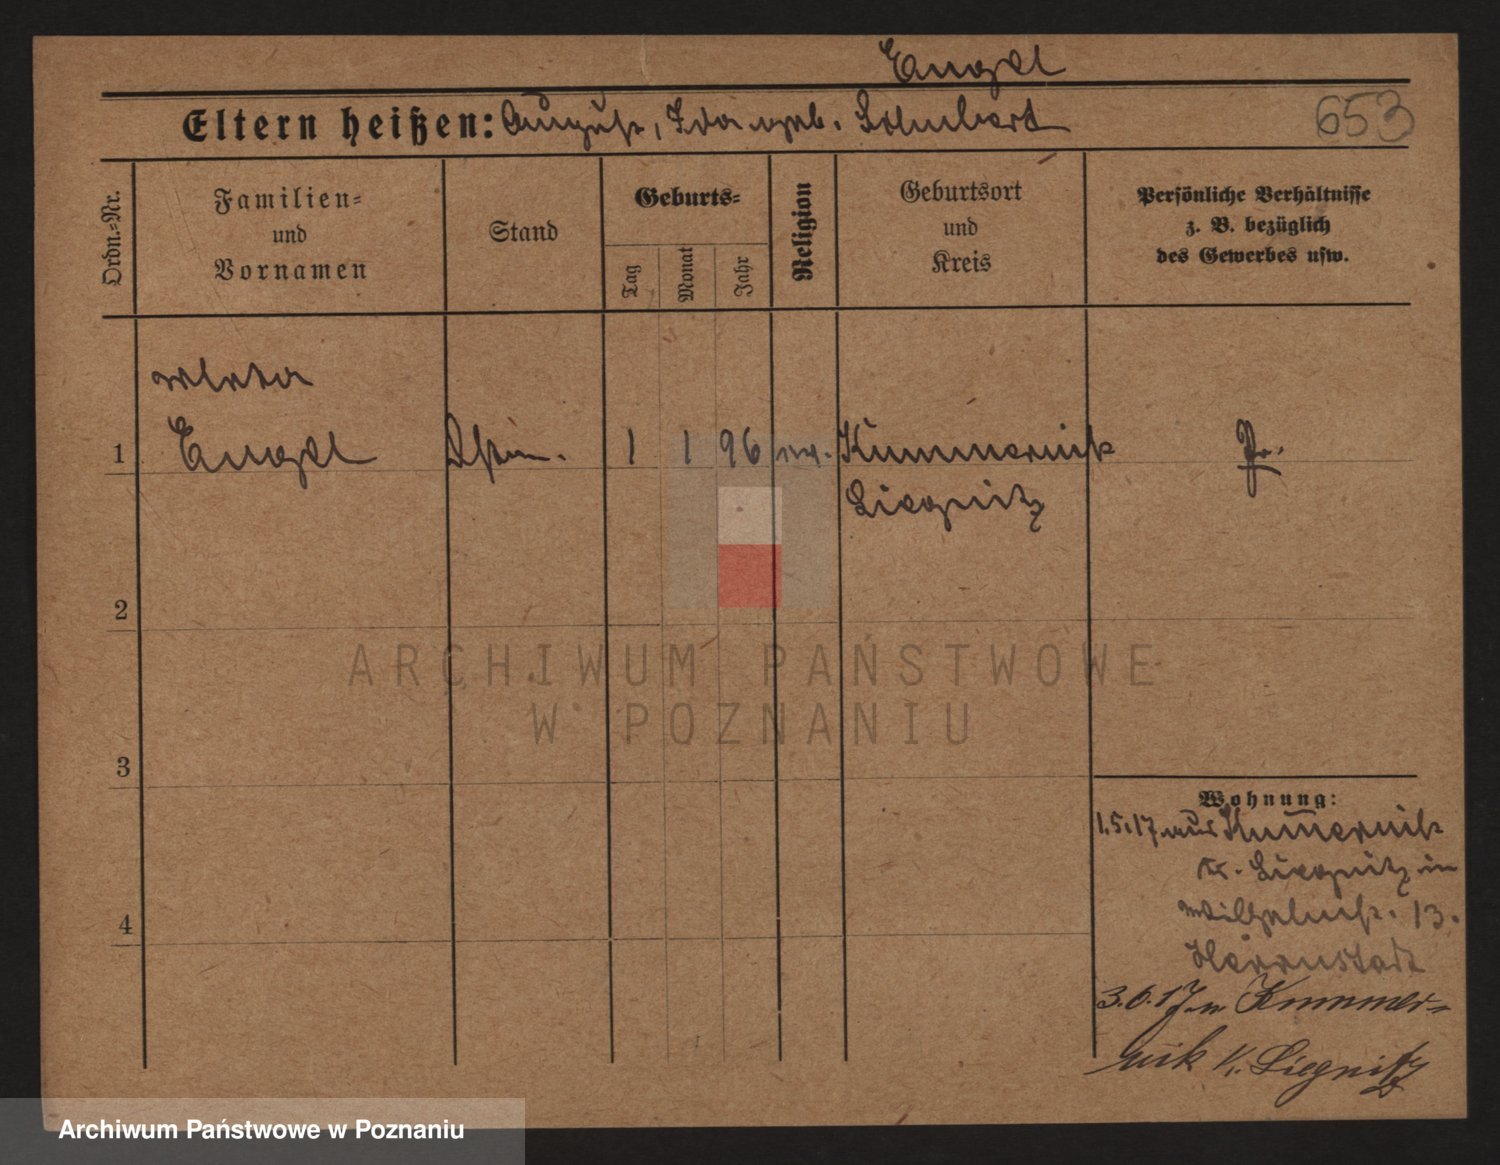 Engel
Eltern heißen: August, Ida geb. Schubert
653
Ordn.-Nr.
Familien-
und
Vornamen
Stand
Geburts-
Tag
Monat
Jahr
Religion
Geburtsort
und
Kreis
Persönliche Verhältnisse
z. B. bezüglich
des Gewerbes usw.
1
Engel
1
1
96
ev.
Kummernik
Liegnitz
Pr.
2
3
4
Wohnung:
1.5.17 aus Kum̅ernik
Kr. Liegnitz in
Wilhelmstr. 13.
Herrnstadt
3.6.17 n. Kummer-
nik K. Liegnitz
ARCHIWUM PAŃSTWOWE
W POZNANIU
Archiwum Państwowe w Poznaniu